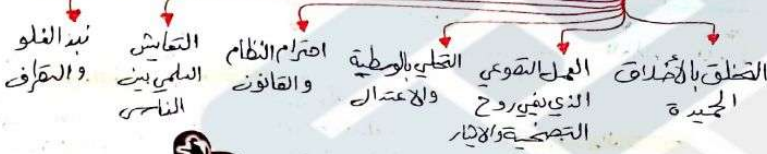 التخلق بالأخلاق
الحميدة
العمل التطوعي
الذي ينمي روح
التضحية والايثار
التحلي بالوسطية
والاعتدال
احترام النظام
والقانون
التعايش
السلمي بين
الناس
نبذ الغلو
والتطرف